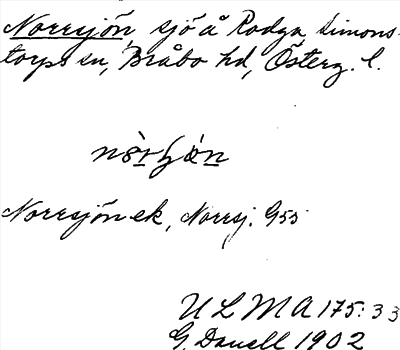 Norrsjön, sjö å Rodga, Simons-
torps sn, Bråbo hd, Österg. l.
Norrsjön ek, Norrsj. G55
ULMA 175: 33
G. Danell 1902